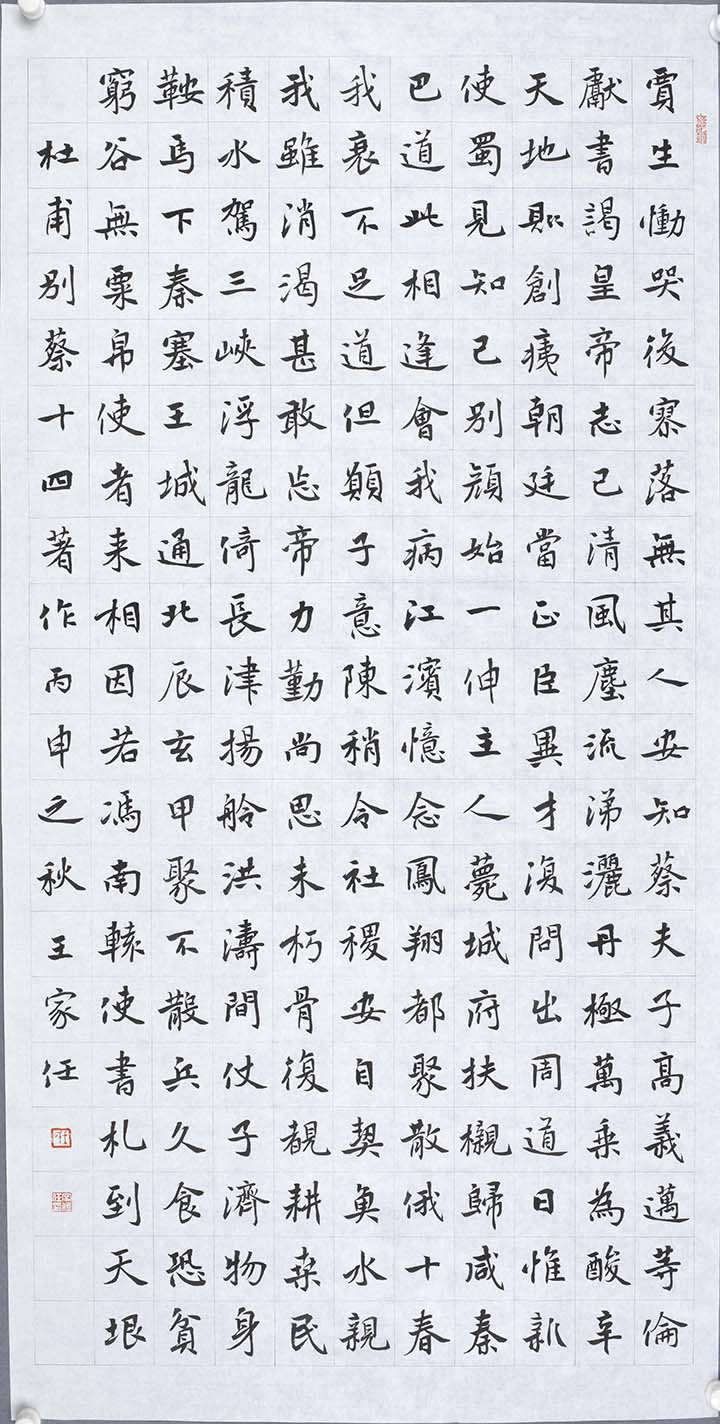 賈生慟哭後寥落無其人安知蔡夫子高義邁等倫
獻書謁皇帝志已清風塵流涕灑丹極萬乗為酸辛
天地則創痍朝廷當正臣異才復問出周道日惟新
使蜀見知己別顔始一伸主人薨城府扶櫬歸咸秦
巴道此相逢會我病江濱憶念鳳翔都聚散俄十春
我衰不足道但願子意陳稍令社稷安自契魚水親
我雖消渴甚敢忘帝力勤尚思未朽骨復覩耕桒民
積水駕三峽浮龍倚長津揚舲洪濤間仗子濟物身
鞍馬下秦塞王城通北辰玄甲聚不散兵久食恐貧
窮谷無粟帛使者来相因若馮南轅使書札到天垠
杜甫別蔡十四著作丙申之秋王家任